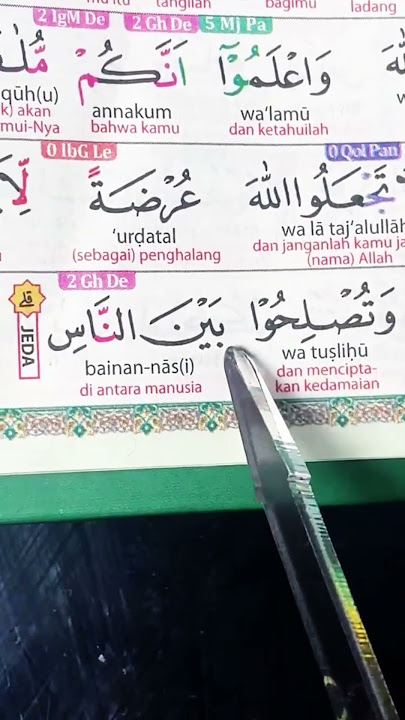 mu itu tangilah bagimu ladang
2 IgM De 2 Gh De 5 Mj Pa
وَاعْلَمُوْٓا اَنَّكُمْ
qūh(u) annakum wa‘lamū
k) akan bahwa kamu dan ketahuilah
mui-Nya
0 IbG Le 0 Qol Pan
تَجْعَلُوا اللّٰهَ عُرْضَةً
‘urḍatal wa lā taj‘alullāh
(sebagai) penghalang dan janganlah kamu ja
(nama) Allah
2 Gh De
وَتُصْلِحُوْا بَيْنَ النَّاسِ ۗ
JEDA
bainan-nās(i) wa tuṣliḥū
di antara manusia dan mencipta-
kan kedamaian